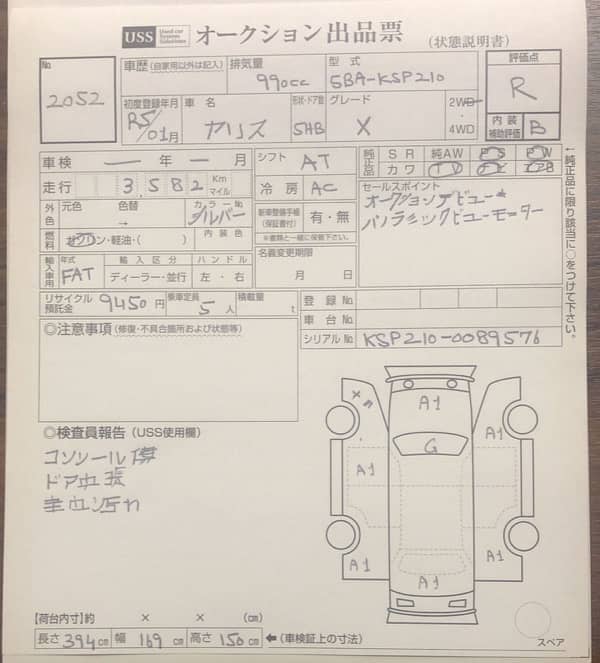 USS Used car System Solutions オークション出品票 (状態説明書)
No 2052
車歴 (自家用以外は記入) 排気量 990cc 型式 5BA-KSP210 評価点 R
初度登録年月 R5/01月 車名 ヤリス 形状・ドア数 5HB グレード X 2WD・4WD 内装補助評価 B
車検 ー 年 ー 月 シフト AT 純正品 SR 純AW PS PW
カワ TV
走行 3,582 Km マイル 冷房 AC セールスポイント
オークションデビュー★
パノラミックビューモニター
外色 元色 色替 → カラーNo シルバー 新車整備手帳(保証書付) 有・無
※書類と一緒に保管下さい。
燃料 ガソリン・軽油・( ) 内装色 名義変更期限
輸入車用 年式 輸入区分 ハンドル 月 日
FAT ディーラー・並行 左・右
リサイクル預託金 9450円 乗車定員 5人 積載量 t 登録No
車台No
シリアルNo KSP210-0089576
←純正品に限り該当に○をつけて下さい。
◎注意事項 (修復・不具合箇所および状態等)
◎検査員報告 (USS使用欄)
コンソール傷
ドア
X A1 A1
G
A1 A1
A1 A1 A1
【荷台内寸】約 × × (cm)
長さ 394cm 幅 169cm 高さ 150cm ←(車検証上の寸法)
スペア